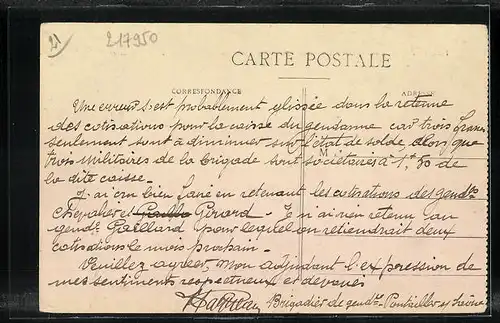 21
217950
CARTE POSTALE
CORRESPONDANCE
ADRESSE
Une erreur s'est probablement glissée dans la retenue
des cotisations pour la caisse du gendarme car trois francs
seulement sont à diminuer sur l'état de solde alors que
trois militaires de la brigade sont sociétaires à 1f 50 de
la dite caisse.
J'ai cru bien faire en retenant les cotisations des gendes
Chevalier et Girard - Je n'ai rien retenu au
gende Gaillard pour lequel on retiendrait deux
cotisations le mois prochain -
Veuillez agréer, mon adjudant l'expression de
mes sentiments respectueux et dévoués
Brigadier de gendie Pontailler sur Saône